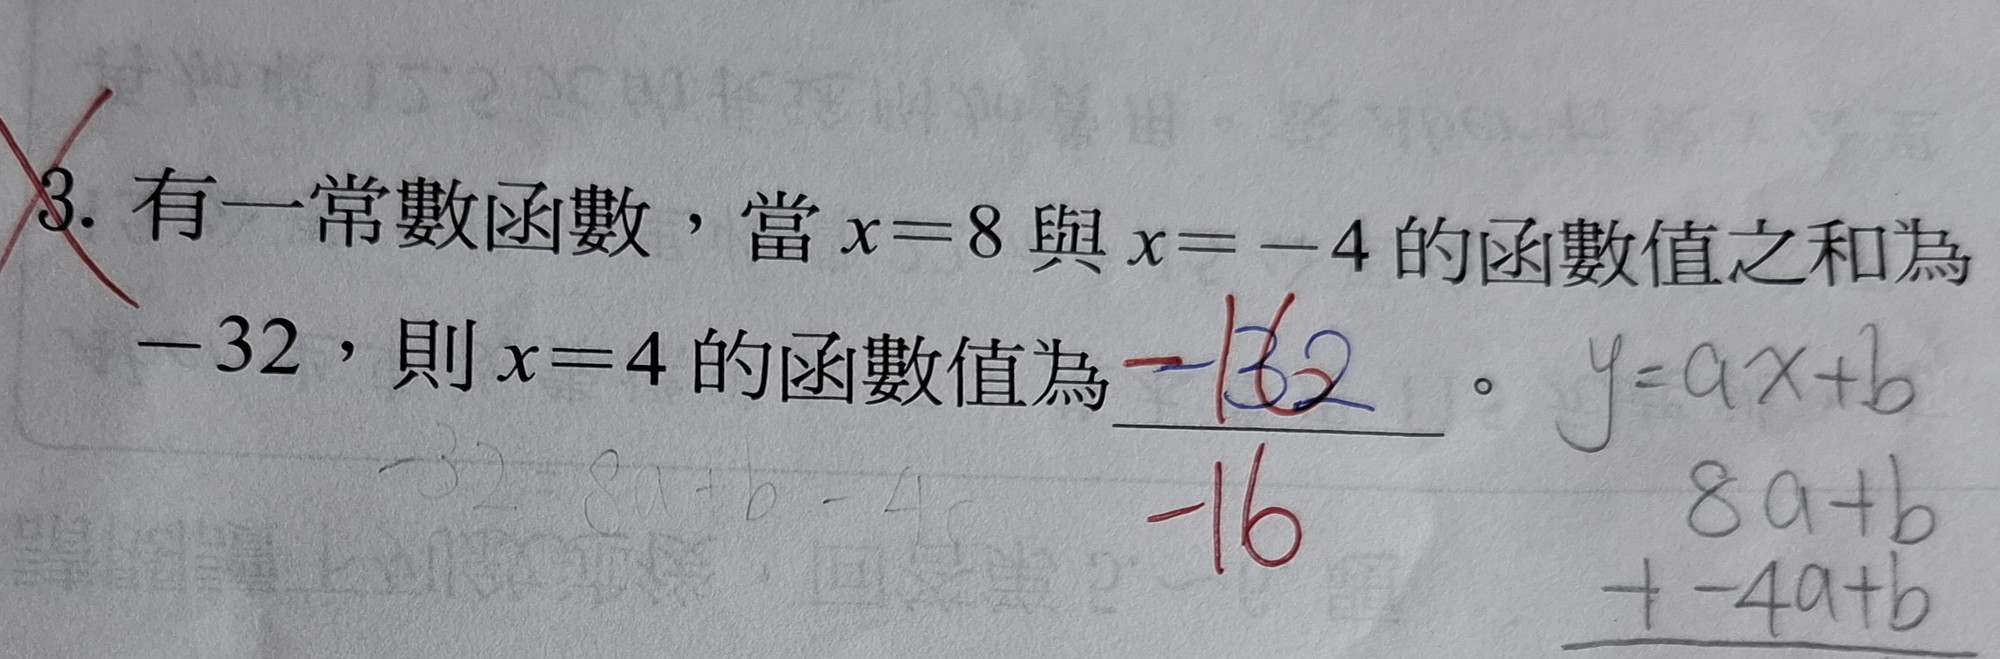 3. 有一常數函數，當 x=8 與 x=－4 的函數值之和為
－32，則 x=4 的函數值為 -16 -32 。 y=ax+b
-32=8a+b-4
-16
8a+b
+ -4a+b